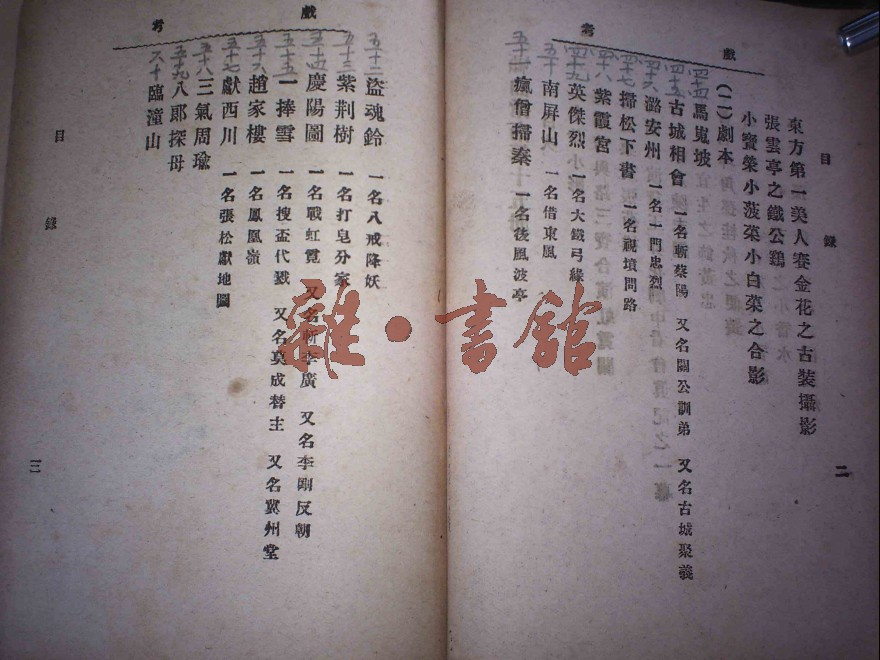 戲考
目錄
二
東方第一美人賽金花之古裝攝影
張雲亭之鐵公鷄
小寶榮小菠菜小白菜之合影
(二)劇本
四十四
馬嵬坡
四十五
古城相會 一名斬蔡陽 又名關公訓弟 又名古城聚義
四十六
潞安州 一名一門忠烈
四十七
掃松下書 一名祝墳問路
四十八
紫霞宮
四十九
英傑烈 一名大鐵弓緣
五十
南屏山 一名借東風
五十一
瘋僧掃秦 一名後風波亭
戲考
五十二
盜魂鈴 一名八戒降妖
五十三
紫荆樹 一名打皂分家
五十四
慶陽圖 一名戰虹霓 又名斬李廣 又名李剛反朝
五十五
一捧雪 一名搜盃代戮 又名莫成替主 又名冀州堂
五十六
趙家樓 一名鳳凰嶺
五十七
獻西川 一名張松獻地圖
五十八
三氣周瑜
五十九
八郞探母
六十
臨潼山
目錄
三
雜·書館